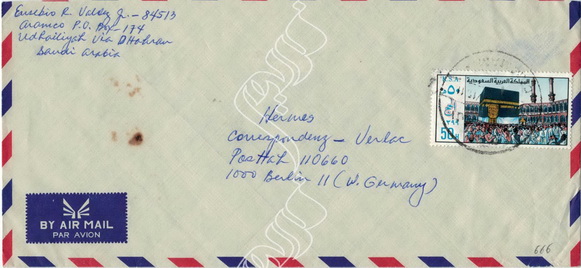 Eusebio R. Valdez Jr. - 84513
Aramco P.O. Box - 174
Udhailiyah Via Dhahran
Saudi Arabia
المملكة العربية السعودية
50
Hermes
Correspondenz - Verlag
Postfach 110660
1000 Berlin 11 (W. Germany)
BY AIR MAIL
PAR AVION
666